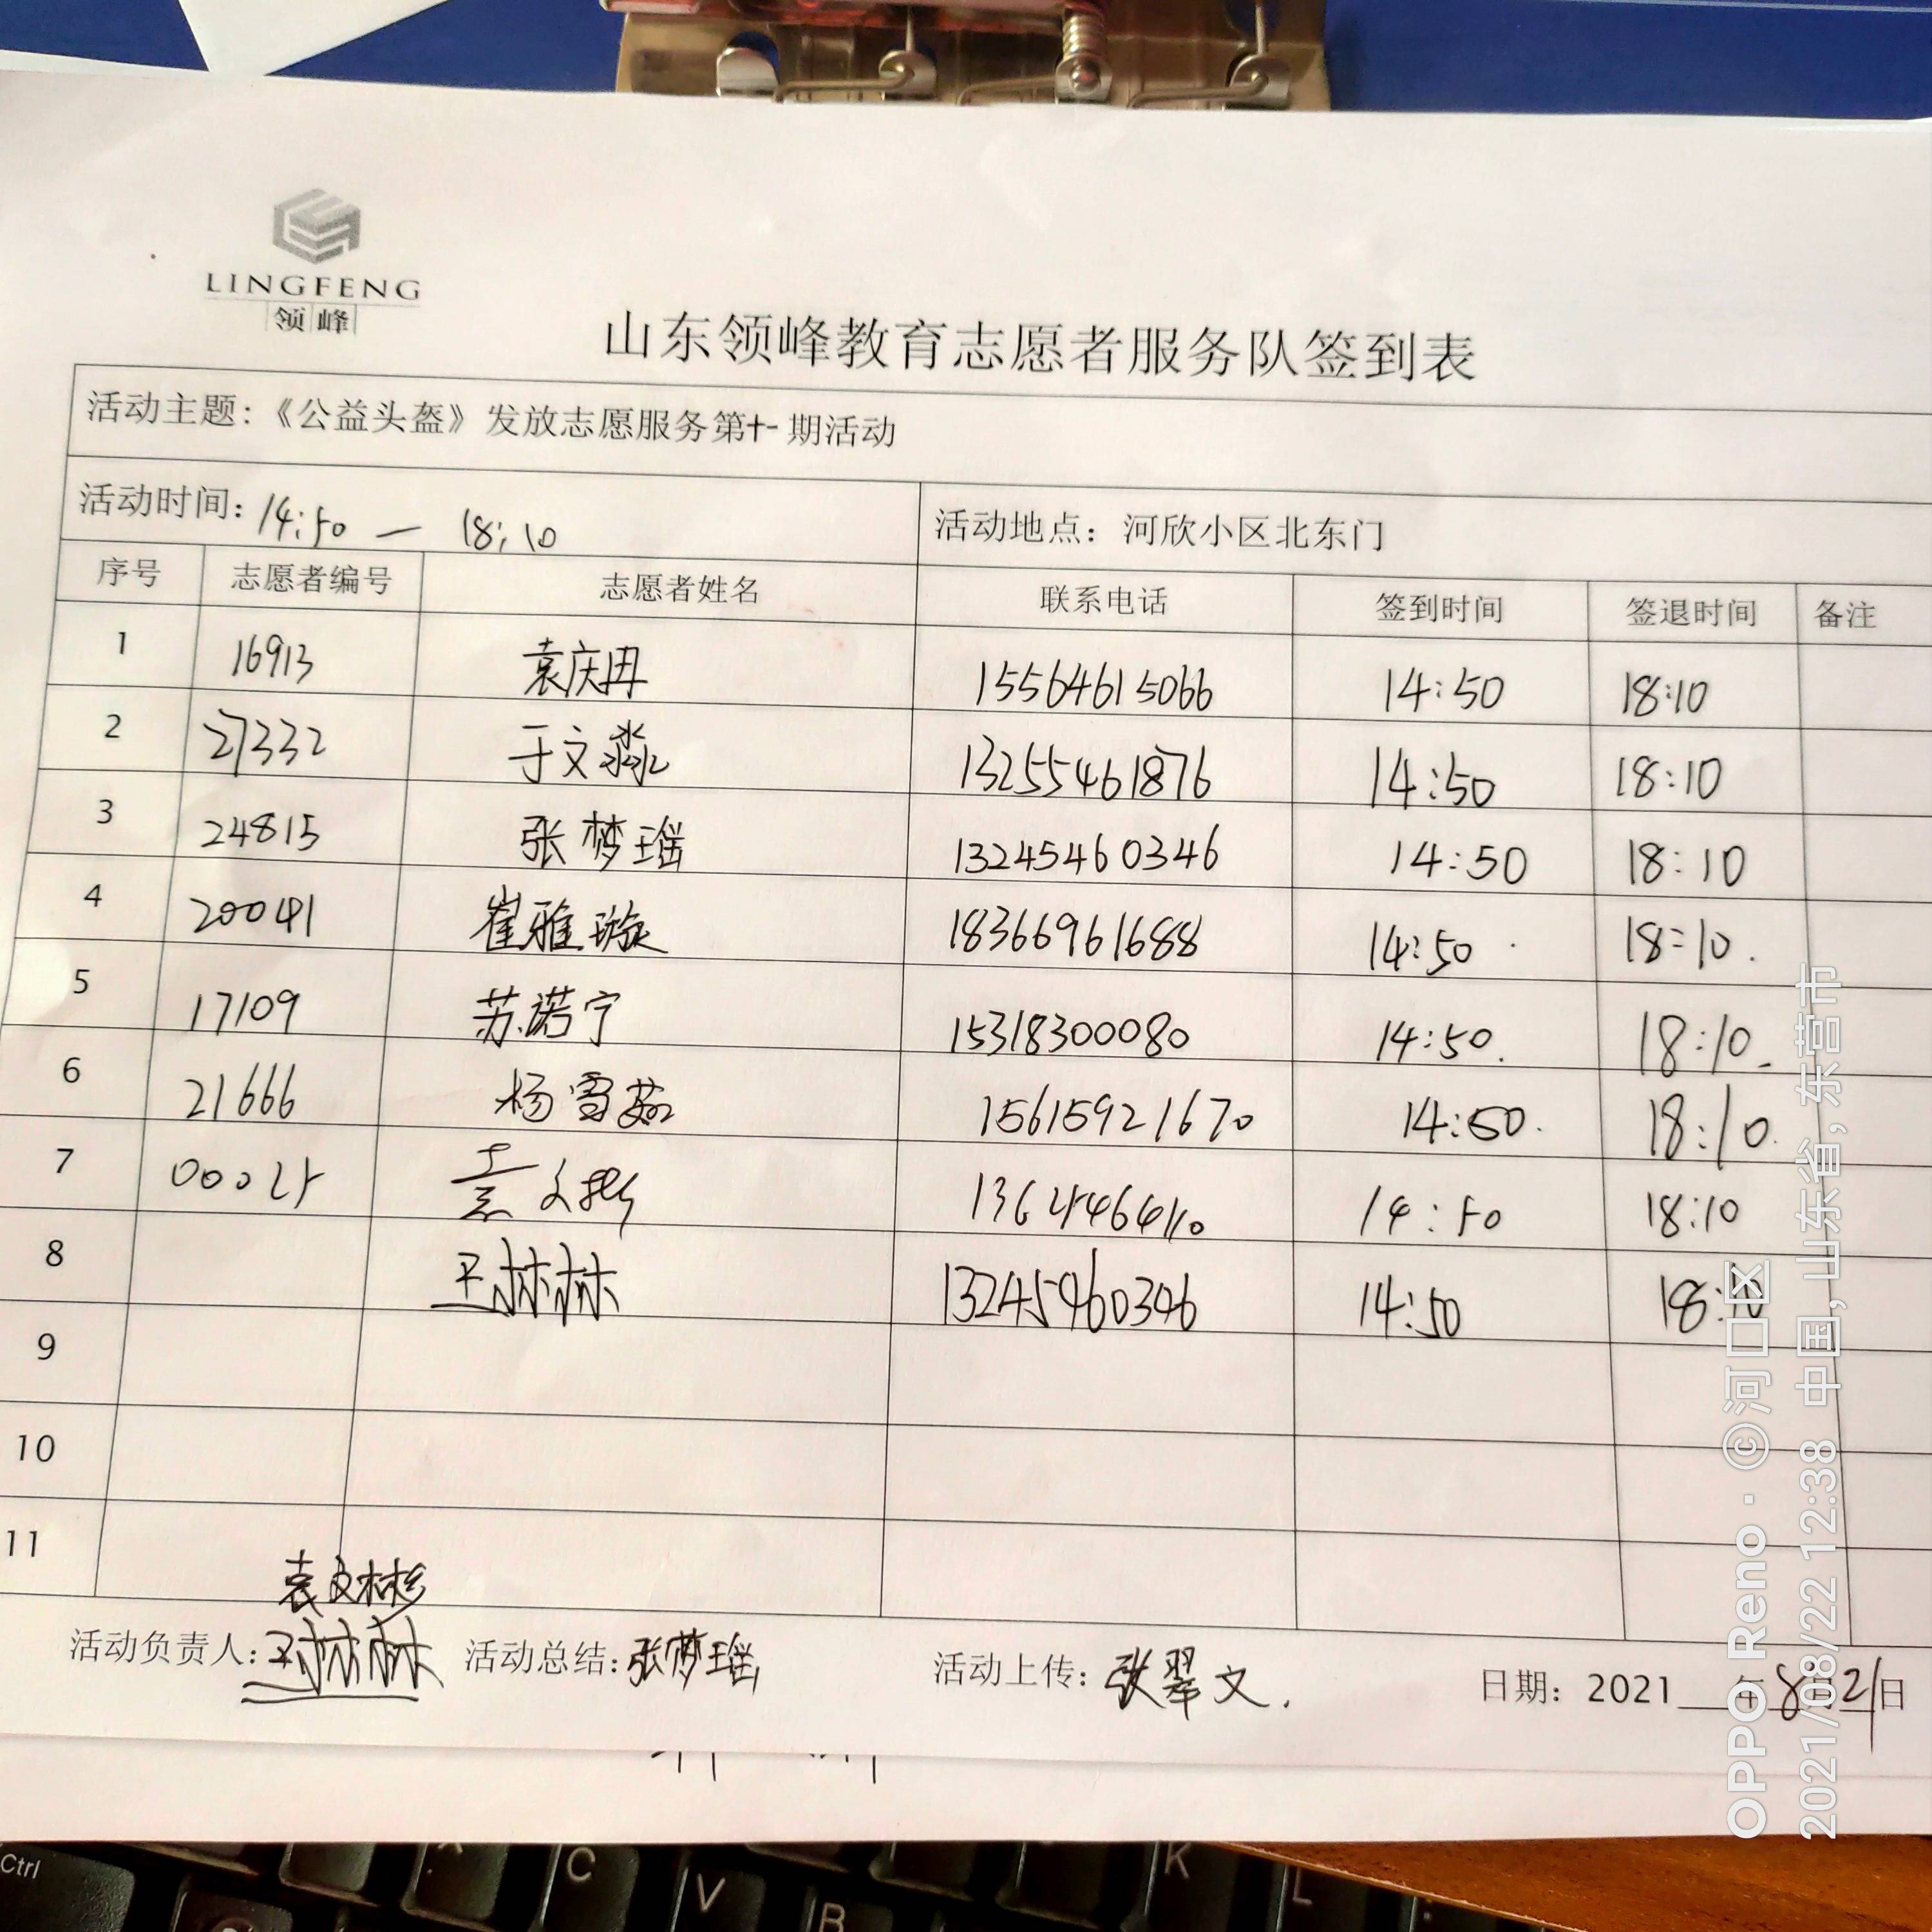 LINGFENG
领峰
山东领峰教育志愿者服务队签到表
活动主题:《公益头盔》发放志愿服务第十一期活动
活动时间: 14:50 — 18:10 活动地点: 河欣小区北东门
序号 志愿者编号 志愿者姓名 联系电话 签到时间 签退时间 备注
1 16913 袁庆冉 15564615066 14:50 18:10
2 27332 于文淼 13255461876 14:50 18:10
3 24815 张梦瑶 13245460346 14:50 18:10
4 20041 崔雅璇 18366961688 14:50 18:10.
5 17109 苏诺宁 15318300080 14:50. 18:10
6 21666 杨雪茹 15615921670 14:50. 18:10.
7 袁文彬 14:50 18:10
8 王林林 13245460346 14:50 18:10
9
10
11
袁文彬
活动负责人: 王林林 活动总结: 张梦瑶 活动上传: 张翠文. 日期: 2021 年 8月21日
OPPO Reno · ©河口区
2021/08/22 12:38 中国, 山东省, 东营市
Ctrl
C
V
B
K
L